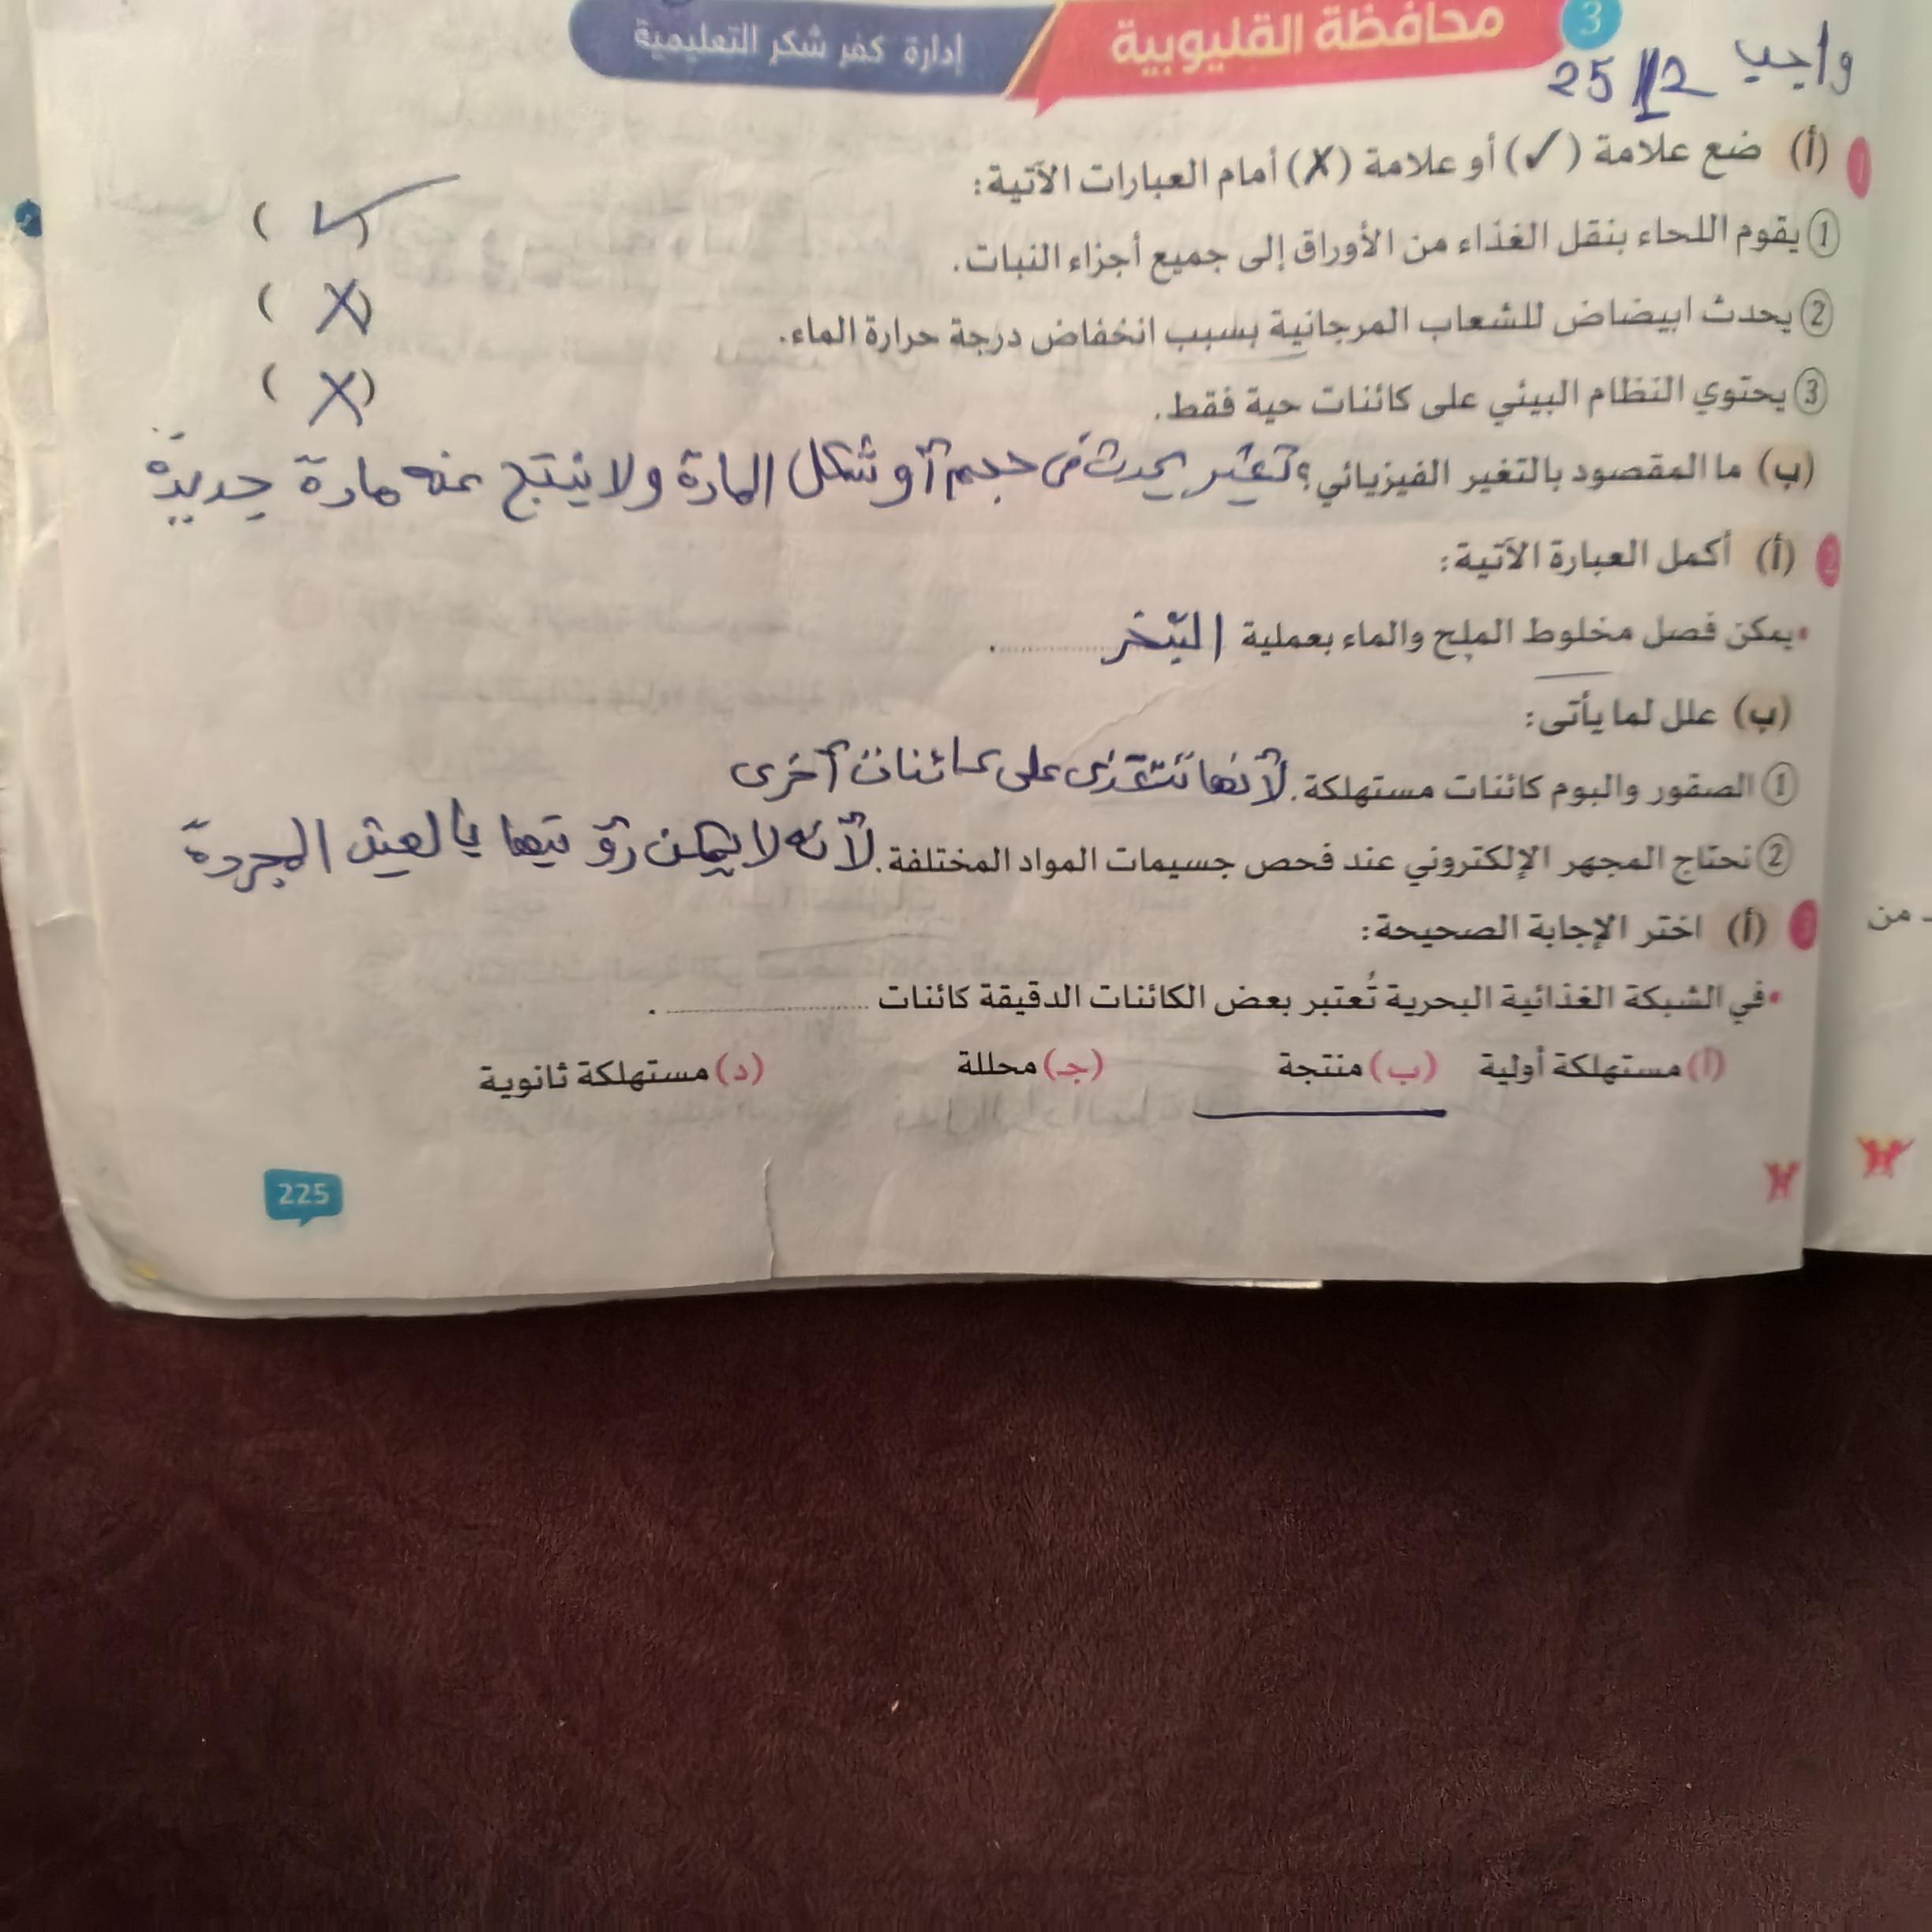 3 محافظة القليوبية إدارة كفر شكر التعليمية
واجب 25/12
1 (أ) ضع علامة (✓) أو علامة (✗) أمام العبارات الآتية:
① يقوم اللحاء بنقل الغذاء من الأوراق إلى جميع أجزاء النبات. (✓)
② يحدث ابيضاض للشعاب المرجانية بسبب انخفاض درجة حرارة الماء. (X)
③ يحتوي النظام البيئي على كائنات حية فقط. (X)
(ب) ما المقصود بالتغير الفيزيائي؟ تغير يحدث فى حجم أو شكل المادة ولا ينتج عنه مادة جديدة
2 (أ) أكمل العبارة الآتية:
• يمكن فصل مخلوط الملح والماء بعملية التبخر .
(ب) علل لما يأتى:
① الصقور والبوم كائنات مستهلكة. لأنها تتغذى على كائنات أخرى
② نحتاج المجهر الإلكتروني عند فحص جسيمات المواد المختلفة. لأنه لا يمكن رؤيتها بالعين المجردة
3 (أ) اختر الإجابة الصحيحة:
• في الشبكة الغذائية البحرية تُعتبر بعض الكائنات الدقيقة كائنات .................... .
(أ) مستهلكة أولية (ب) منتجة (جـ) محللة (د) مستهلكة ثانوية
225
من